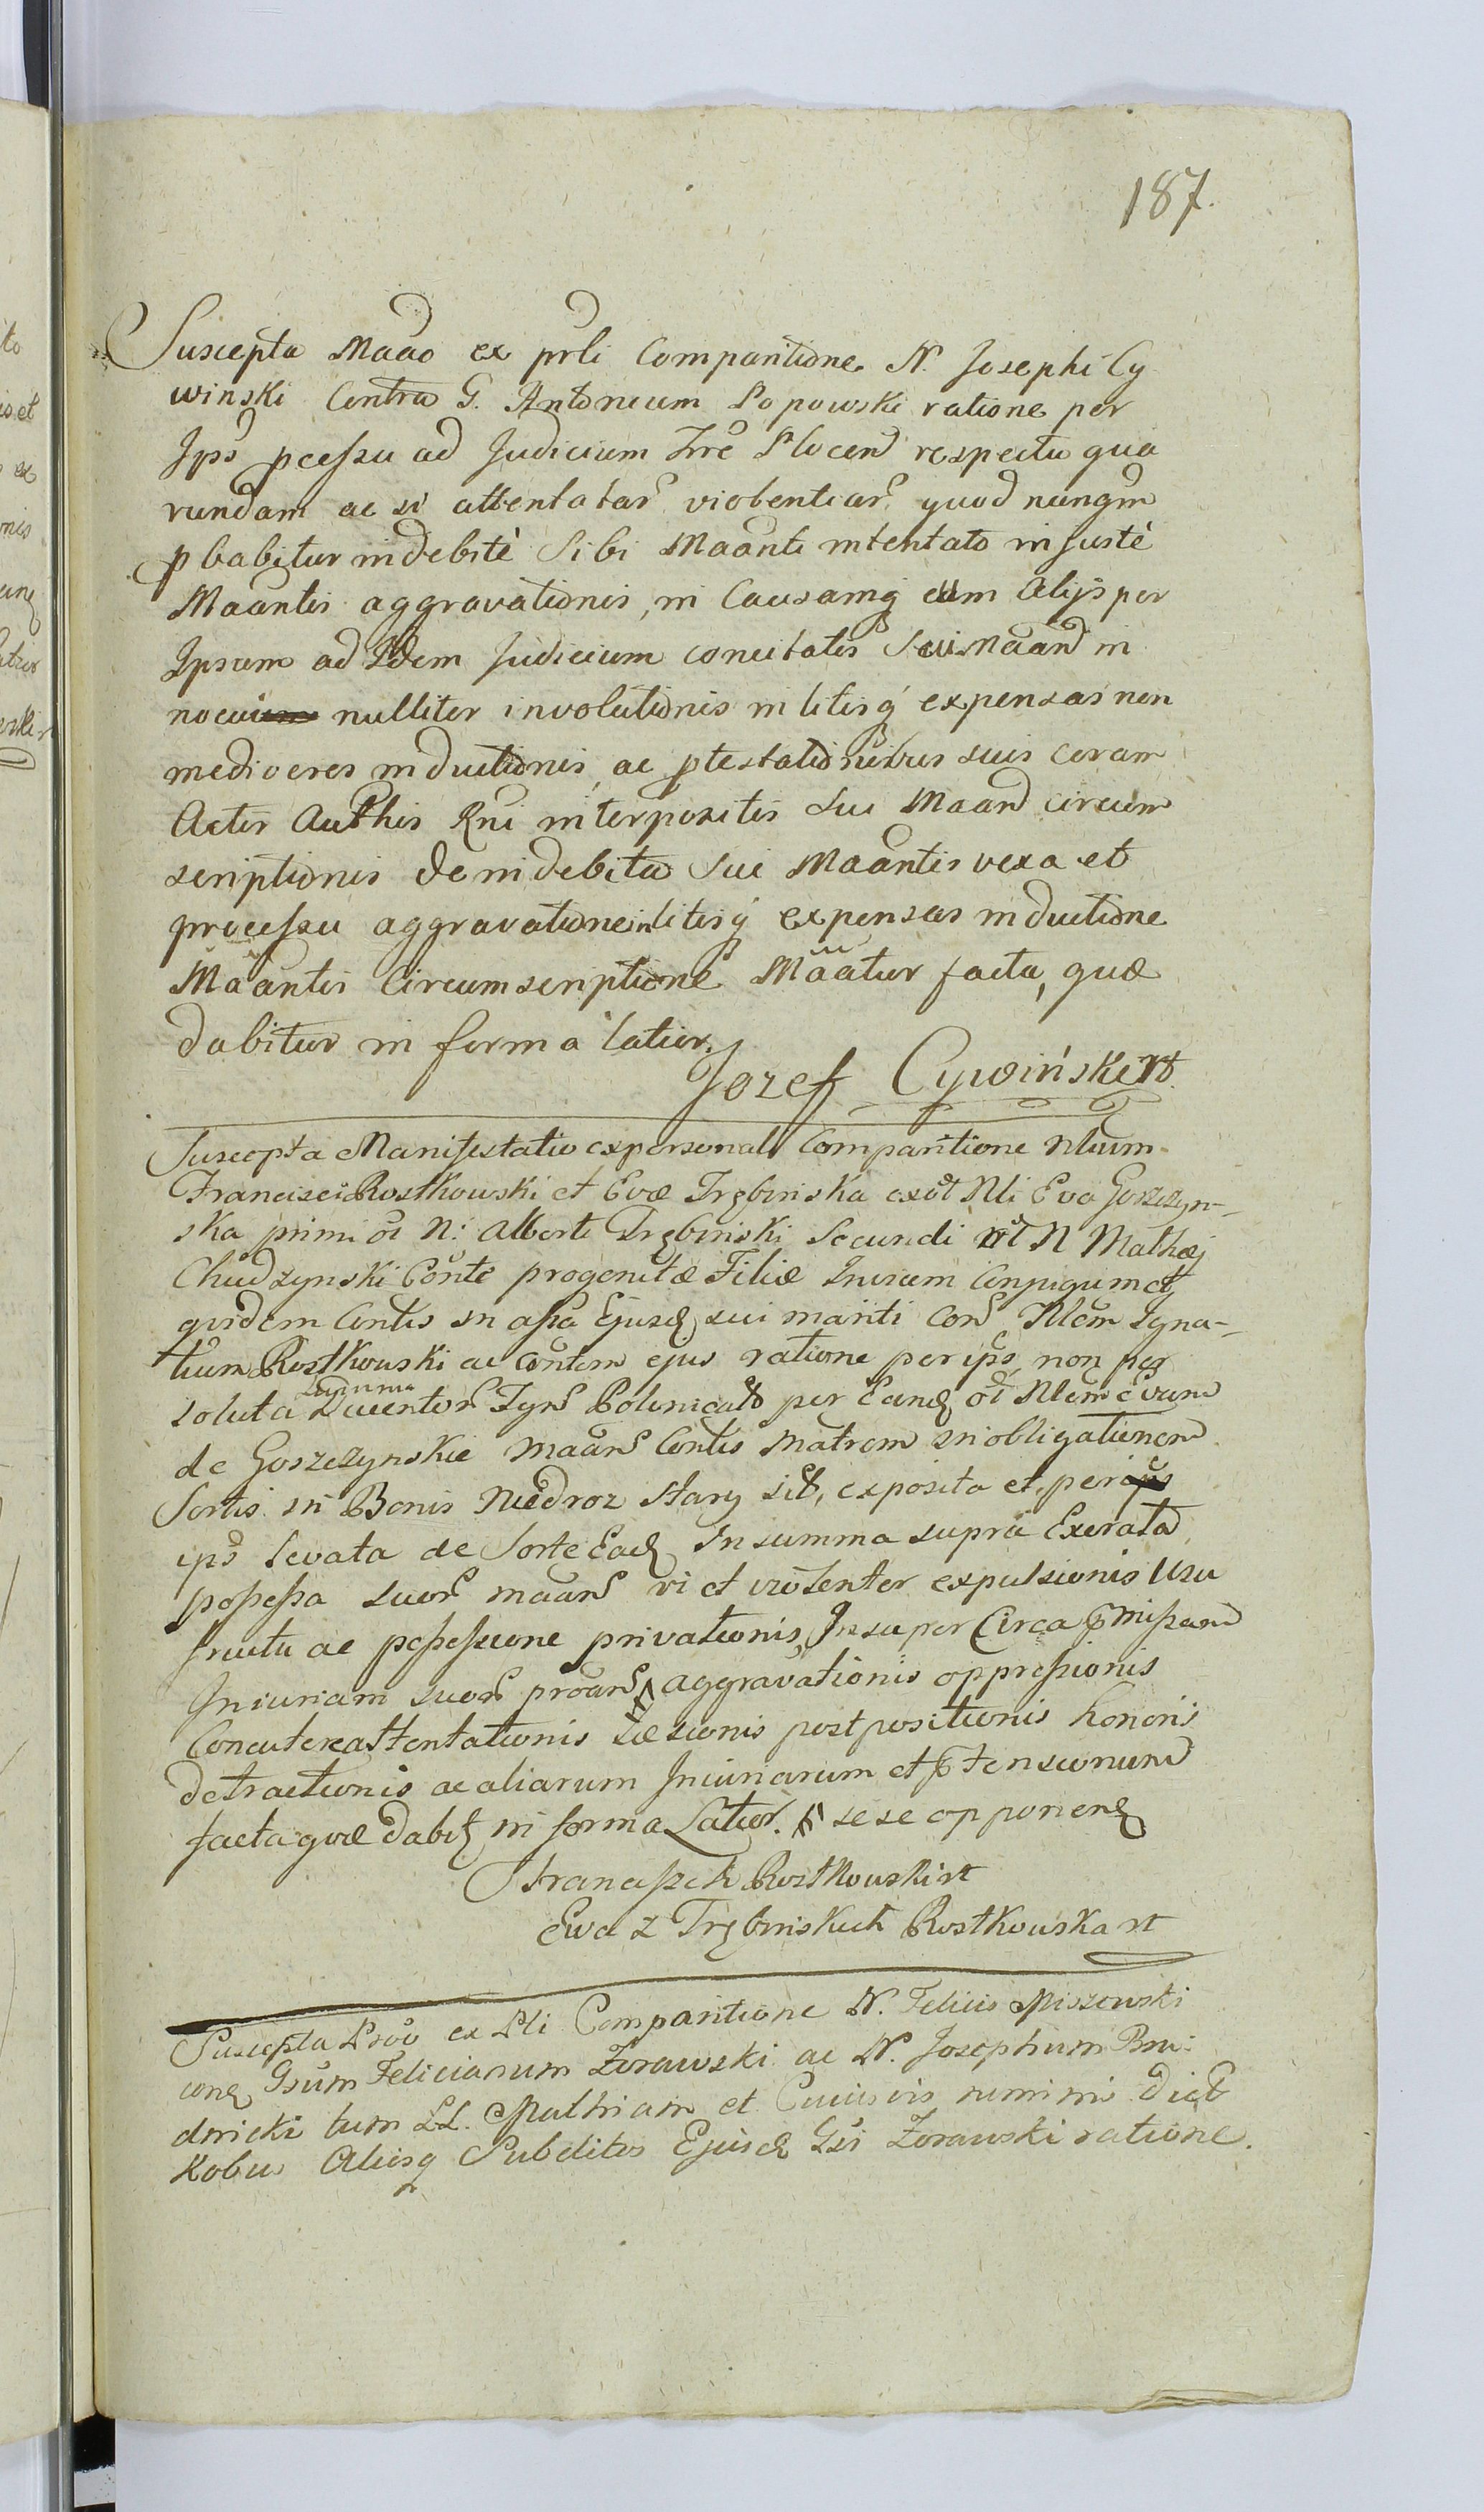 187.
Suscepta Maao ex prli Comparitione N. Josephi Cy
winski Contra G. Antonium Popowski ratione per
Ips pcessu ad Judicium Trre Plocen respectu qua
rundam ac si attentatar violentiar quod nunqm
pbabitur indebitè Sibi Maanti intentato injustè
Maantis aggravationis, in Causamq cum Alijs per
Ipsum ad Idem Judicium concitatis Sui Maand in
nocui nulliter involutionis in litisq expensas non
mediocres inductionis, ac ptestationibus suis coram
Actis Authis Rni interpositis Sui Maand circum
scriptionis de indebita Sui Maantis vexa et
processu aggravatione in litisq expensas inductione
Maantis Circumscriptione Maatur facta, quæ
dabitur in forma latior.
Jozef Cywiński rt
Suscepta Manifestatio ex personali Comparitione Nlium
Francisci Rostkowski et Evæ Trębinska ex olt Nli Eva Goszczyn-
ska primi oi N: Alberti Trębinski Secundi vt N Mathæj
Chudzynski Conte progenitæ Filiæ Invicem Conjugum et
quidem Contis in assa Ejusd sui mariti Con Nlem Igna-
tium Rostkowski ac Contem ejus ratione per ips non per
soluta Summa Ducentor Tyn Polonicalt per Eand oi Nlem Evam
de Goszczynskie Maan Contis Matrem in obligationem
Sortis in Bonis Niedroz Stary sit, exposita et per
ips levata de Sorte Ead In summa supra Exerata
possessa suor maan vi et violenter expulsionis Usu
fructu ac possessione privationis, Insuper Circa pmissam
Injuriam suor proan aggravationis oppressionis
Concuterea ttentationis læsionis postpositionis honoris
detractionis ac aliarum Injuriarum et ptensionum
facta quæ dabit in forma Latior. sese opponend
Franciszek Rostkowski rt
Ewa z Trębinskich Rostkowska rt
Suscepta Prov ex Pli Comparitione N. Felicis Miszewski
cong Gsum Felicianum Zorawski ac N. Josephum Bru:
dnicki tum LL. Mathiam et Cuiusvis nominis dict
Kobus Aliosq Subditos Ejusd Gsi Zorawski ratione.